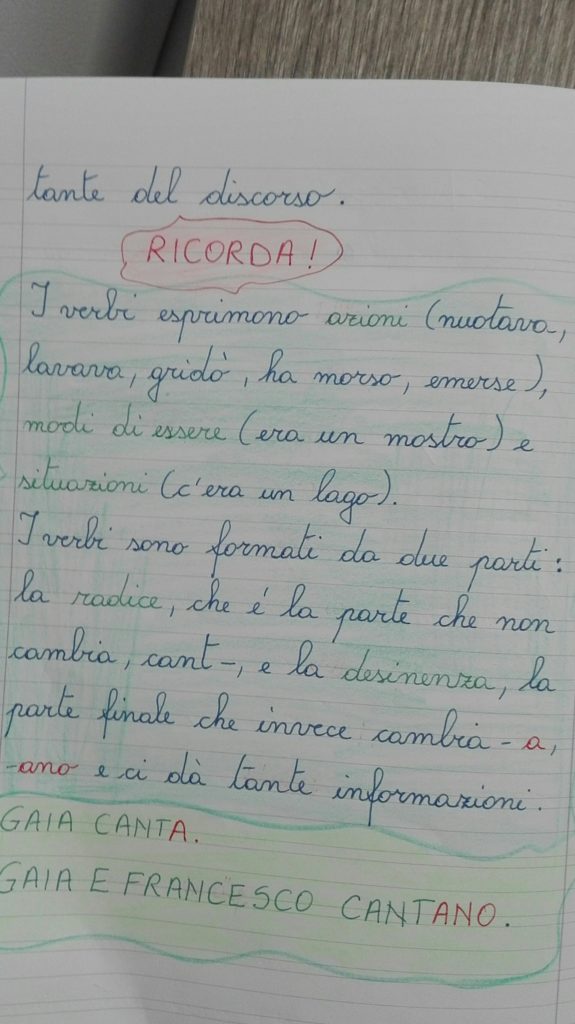 tante del discorso.
RICORDA!
I verbi esprimono azioni (nuotava,
lavava, gridò, ha morso, emerse),
modi di essere (era un mostro) e
situazioni (c'era un lago).
I verbi sono formati da due parti:
la radice, che é la parte che non
cambia, cant-, e la desinenza, la
parte finale che invece cambia -a,
-ano e ci dà tante informazioni.
GAIA CANTA.
GAIA E FRANCESCO CANTANO.